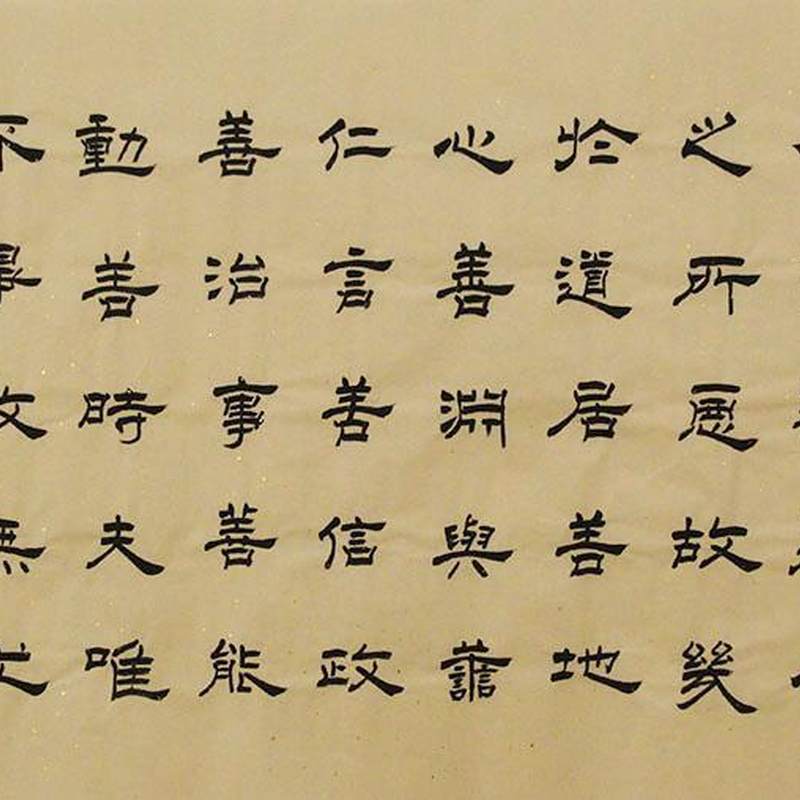 之所惡故幾
於道居善地
心善淵與譱
仁言善信政
善治事善能
動善時夫唯
不故無尤